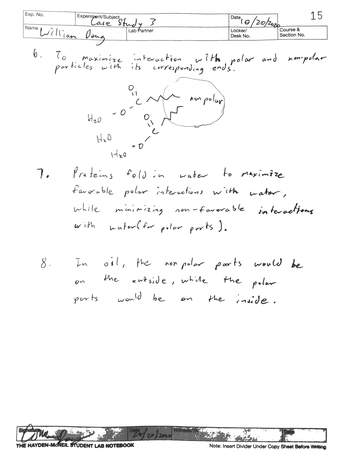 Exp. No.
Experiment/Subject
Case Study 3
Date
10/20/2020
15
Name
William Dong
Lab Partner
Locker/
Desk No.
Course &
Section No.
6. To maximize interaction with polar and non-polar
particles with its corresponding ends.
O
C
non polar
H2O - O
O
H2O C
H2O - O
7. Proteins fold in water to maximize
favorable polar interactions with water,
while minimizing non-favorable interactions
with water (for polar parts).
8. In oil, the non polar parts would be
on the outside, while the polar
parts would be on the inside.
Signature
Date
10/20/2020
THE HAYDEN-McNEIL STUDENT LAB NOTEBOOK
Note: Insert Divider Under Copy Sheet Before Writing